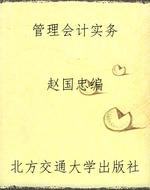 管理会计实务
赵国忠编
北方交通大学出版社